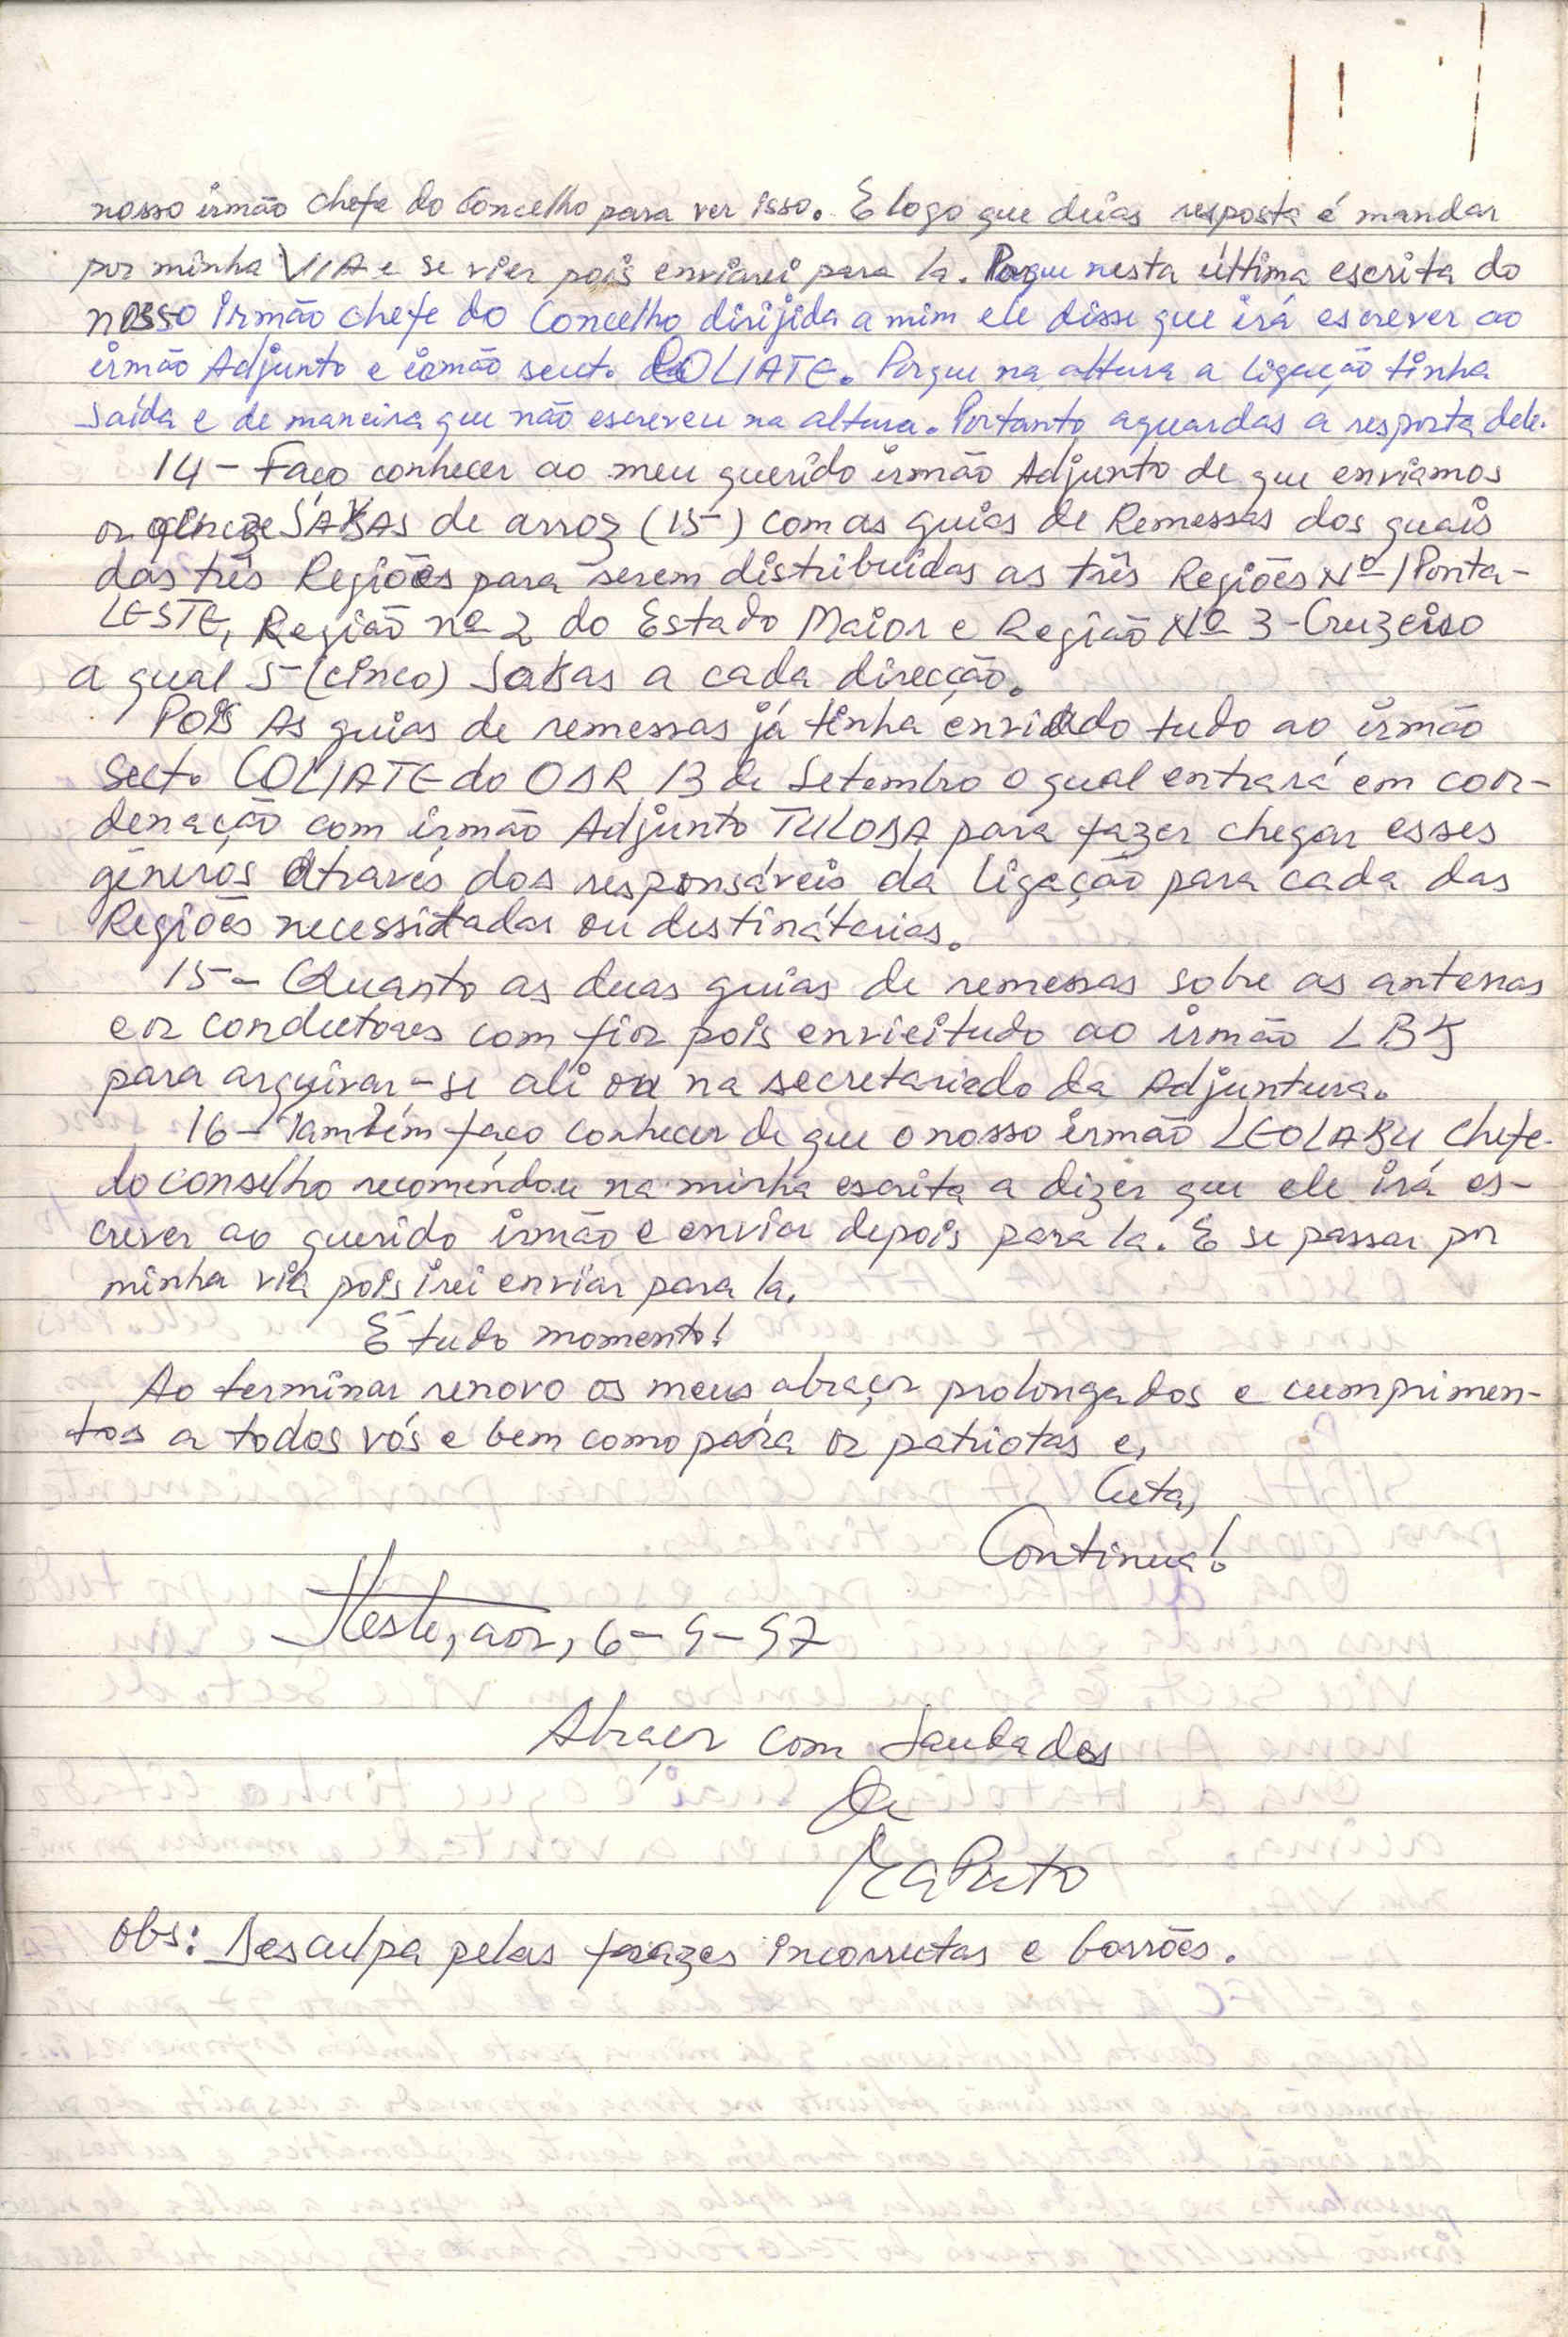 nosso irmão chefe do Concelho para ver isso. E logo que deias resposta é mandar
por minha VIA e se vier pois enviarei para la. Porque nesta última escrita do
nosso irmão chefe do Concelho dirijida a mim ele disse que irá escrever ao
irmão Adjunto e irmão sect. COLIATE. Porque na altura a ligação tinha
saída e de maneira que não escreveu na altura. Portanto aguardas a resposta dele.
14 - Faço conhecer ao meu querido irmão Adjunto de que enviamos
os quinze SAKAS de arroz (15) com as guias de Remessas dos quais
das três Regiões para serem distribuidas as três Regiões Nº 1 Ponta-
LESTE, Região nº 2 do Estado Maior e Região Nº 3 - Cruzeiro
a qual 5 (cinco) Sakas a cada direcção.
Pois As guias de remessas já tinha enviado tudo ao irmão
Secto COLIATE do OSR 13 de Setembro o qual entrará em coor-
denação com irmão Adjunto TULODA para fazer chegar esses
géneros através dos responsáveis da ligação para cada das
Regiões necessitadas ou destinátarias.
15 - Quanto as duas guias de remessas sobre as antenas
e os condutores com fios pois envieitudo ao irmão LBK
para arquivar-se ali ou na secretariado da Adjuntura.
16 - Também faço conhecer de que o nosso irmão LEOLABU chefe
do conselho recomendou na minha escrita a dizer que ele irá es-
crever ao querido irmão e enviar depois para la. E se passar por
minha via pois irei enviar para la.
É tudo momento!
Ao terminar renovo os meus abraços prolongados e cumprimen-
tos a todos vós e bem como para os patriotas e,
Luta,
Continua!
Leste, aos, 6-9-97
Abraços com Saudades
de
MaPuto
Obs: Desculpa pelas frazes incorrectas e borrões.